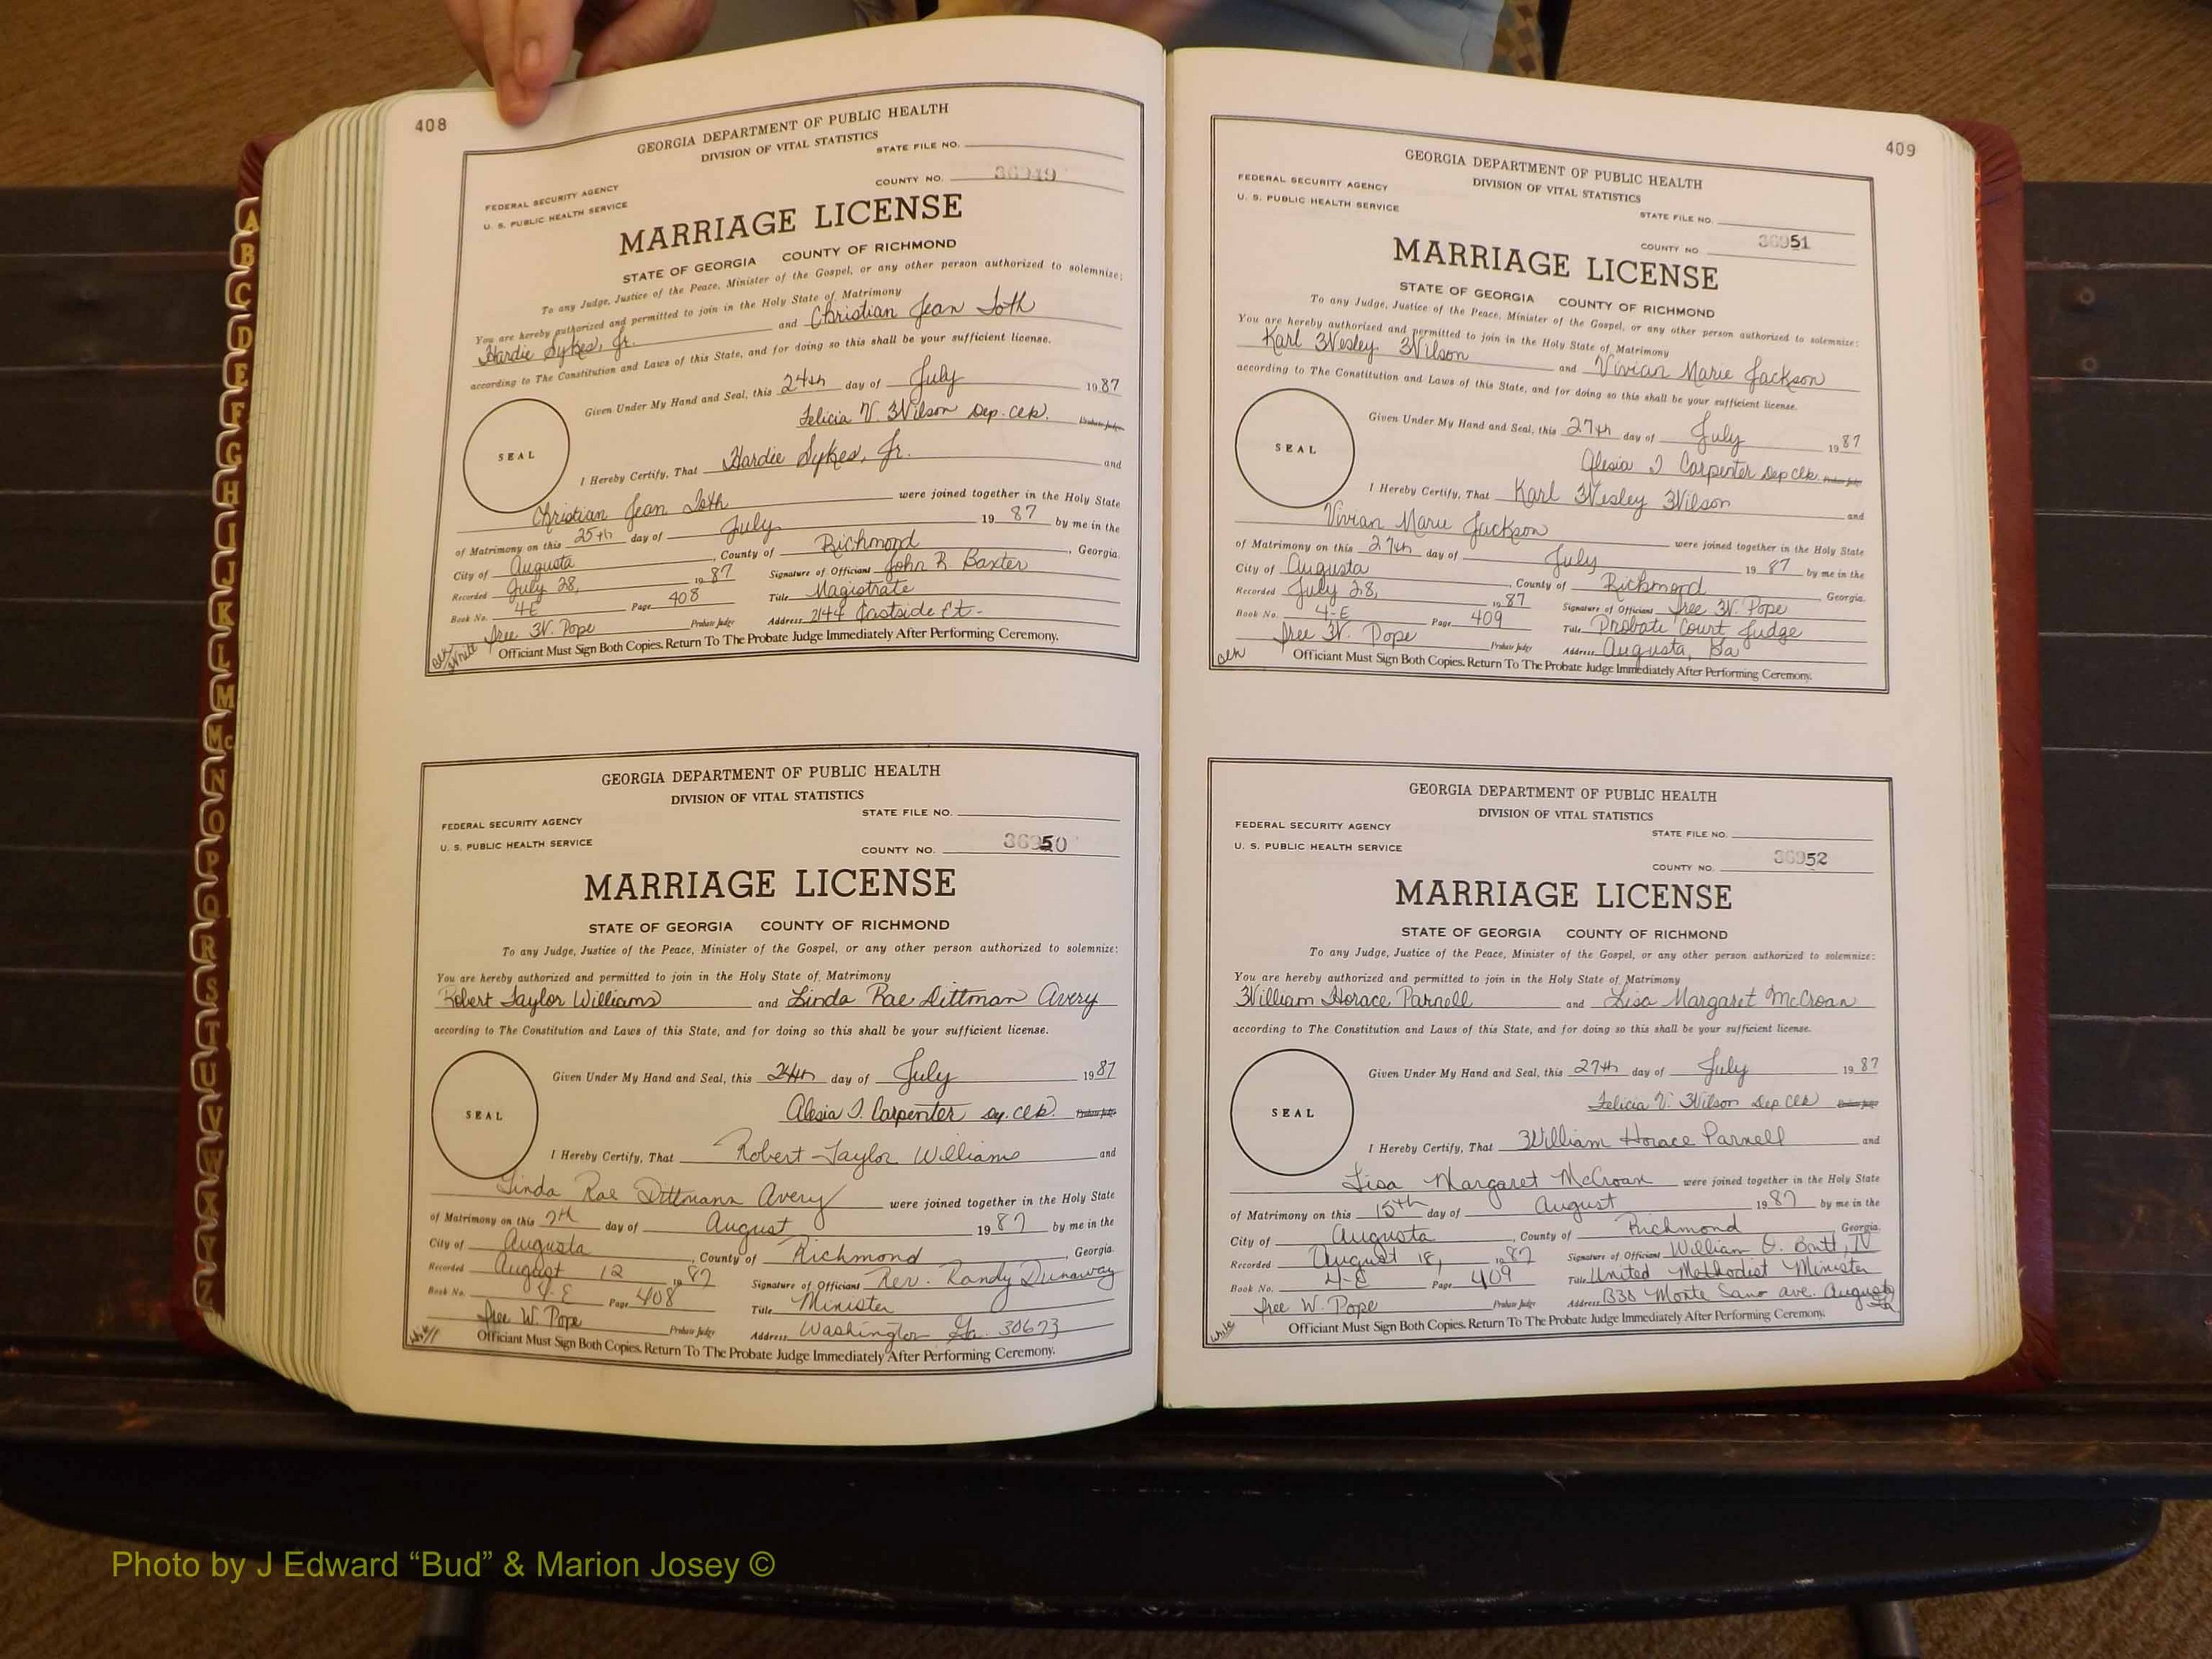 408
GEORGIA DEPARTMENT OF PUBLIC HEALTH
DIVISION OF VITAL STATISTICS
STATE FILE NO.
FEDERAL SECURITY AGENCY
COUNTY NO. 36949
U. S. PUBLIC HEALTH SERVICE
MARRIAGE LICENSE
STATE OF GEORGIA COUNTY OF RICHMOND
To any Judge, Justice of the Peace, Minister of the Gospel, or any other person authorized to solemnize:
You are hereby authorized and permitted to join in the Holy State of Matrimony
Hardie Sykes, Jr. and Christian Jean Toth
according to The Constitution and Laws of this State, and for doing so this shall be your sufficient license.
Given Under My Hand and Seal, this 24th day of July 1987
Felicia V. Wilson Dep. Clk. Probate Judge
SEAL
I Hereby Certify, That Hardie Sykes, Jr. and
Christian Jean Toth were joined together in the Holy State
of Matrimony on this 25th day of July 1987 by me in the
City of Augusta, County of Richmond, Georgia.
Recorded July 28, 1987 Signature of Officiant John R. Baxter
Book No. 4E Page 408 Title Magistrate
Iree W. Pope Probate Judge Address 2144 Eastside Ct.
Officiant Must Sign Both Copies. Return To The Probate Judge Immediately After Performing Ceremony.
GEORGIA DEPARTMENT OF PUBLIC HEALTH
DIVISION OF VITAL STATISTICS
STATE FILE NO.
FEDERAL SECURITY AGENCY
U. S. PUBLIC HEALTH SERVICE
COUNTY NO. 36950
MARRIAGE LICENSE
STATE OF GEORGIA COUNTY OF RICHMOND
To any Judge, Justice of the Peace, Minister of the Gospel, or any other person authorized to solemnize:
You are hereby authorized and permitted to join in the Holy State of Matrimony
Robert Taylor Williams and Linda Rae Dittman Avery
according to The Constitution and Laws of this State, and for doing so this shall be your sufficient license.
Given Under My Hand and Seal, this 24th day of July 1987
Alesia J. Carpenter Dy. Clk. Probate Judge
SEAL
I Hereby Certify, That Robert Taylor Williams and
Linda Rae Dittmann Avery were joined together in the Holy State
of Matrimony on this 7th day of August 1987 by me in the
City of Augusta, County of Richmond, Georgia.
Recorded August 12 1987 Signature of Officiant Rev. Randy Dunaway
Book No. 4-E Page 408 Title Minister
Iree W. Pope Probate Judge Address Washington Ga. 30673
Officiant Must Sign Both Copies. Return To The Probate Judge Immediately After Performing Ceremony.
409
GEORGIA DEPARTMENT OF PUBLIC HEALTH
DIVISION OF VITAL STATISTICS
FEDERAL SECURITY AGENCY
U. S. PUBLIC HEALTH SERVICE
STATE FILE NO.
COUNTY NO 36951
MARRIAGE LICENSE
STATE OF GEORGIA COUNTY OF RICHMOND
To any Judge, Justice of the Peace, Minister of the Gospel, or any other person authorized to solemnize:
You are hereby authorized and permitted to join in the Holy State of Matrimony
Karl Wesley Wilson and Vivian Marie Jackson
according to The Constitution and Laws of this State, and for doing so this shall be your sufficient license.
Given Under My Hand and Seal, this 27th day of July 1987
Alesia J Carpenter Dep Clk. Probate Judge
SEAL
I Hereby Certify, That Karl Wesley Wilson and
Vivian Marie Jackson were joined together in the Holy State
of Matrimony on this 27th day of July 1987 by me in the
City of Augusta, County of Richmond Georgia.
Recorded July 28, 1987 Signature of Officiant Iree W. Pope
Book No. 4-E Page 409 Title Probate Court Judge
Iree W. Pope Probate Judge Address Augusta, Ga
Officiant Must Sign Both Copies. Return To The Probate Judge Immediately After Performing Ceremony.
GEORGIA DEPARTMENT OF PUBLIC HEALTH
DIVISION OF VITAL STATISTICS
FEDERAL SECURITY AGENCY
STATE FILE NO.
U. S. PUBLIC HEALTH SERVICE
COUNTY NO. 36952
MARRIAGE LICENSE
STATE OF GEORGIA COUNTY OF RICHMOND
To any Judge, Justice of the Peace, Minister of the Gospel, or any other person authorized to solemnize:
You are hereby authorized and permitted to join in the Holy State of Matrimony
William Horace Parnell and Lisa Margaret McCroan
according to The Constitution and Laws of this State, and for doing so this shall be your sufficient license.
Given Under My Hand and Seal, this 27th day of July 1987
Felicia V. Wilson Dep Clk Probate Judge
SEAL
I Hereby Certify, That William Horace Parnell and
Lisa Margaret McCroan were joined together in the Holy State
of Matrimony on this 15th day of August 1987 by me in the
City of Augusta, County of Richmond Georgia.
Recorded August 18, 1987 Signature of Officiant William O. Britt, IV
Book No. 4-E Page 409 Title United Methodist Minister
Iree W. Pope Probate Judge Address Monte Sano ave. Augusta Ga
Officiant Must Sign Both Copies. Return To The Probate Judge Immediately After Performing Ceremony.
A
B
C
D
E
F
G
H
I
J
K
L
M
Mc
N
O
P
Q
R
S
T
U
V
W
X
Y
Z
Photo by J Edward “Bud” & Marion Josey ©